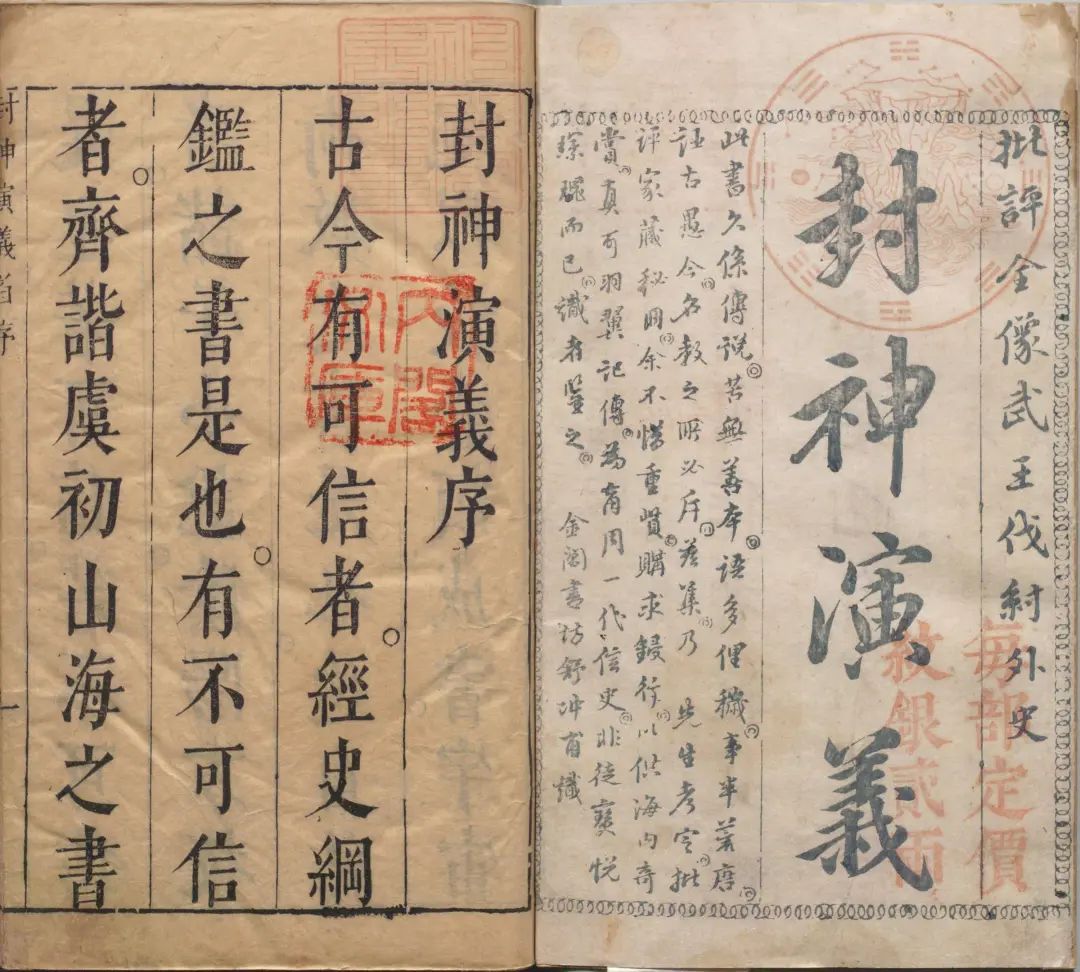 批評全像武王伐紂外史
封神演義
每部定價
紋銀貳兩
此書久係傳說苦無善本語多俚穢事半荒唐
誣古愚今名教之所必斥茲集乃 先生考定批
評家藏秘冊余不惜重貲購求鋟行以供海內奇
賞真可羽翼記傳為商周一代信史非徒寶悅
琛瓌而已識者鑒之 金閶書坊舒冲甫識
封神演義序
古今有可信者經史綱
鑑之書是也有不可信
者齊諧虞初山海之書
封神演義 序 一
內閣
文庫